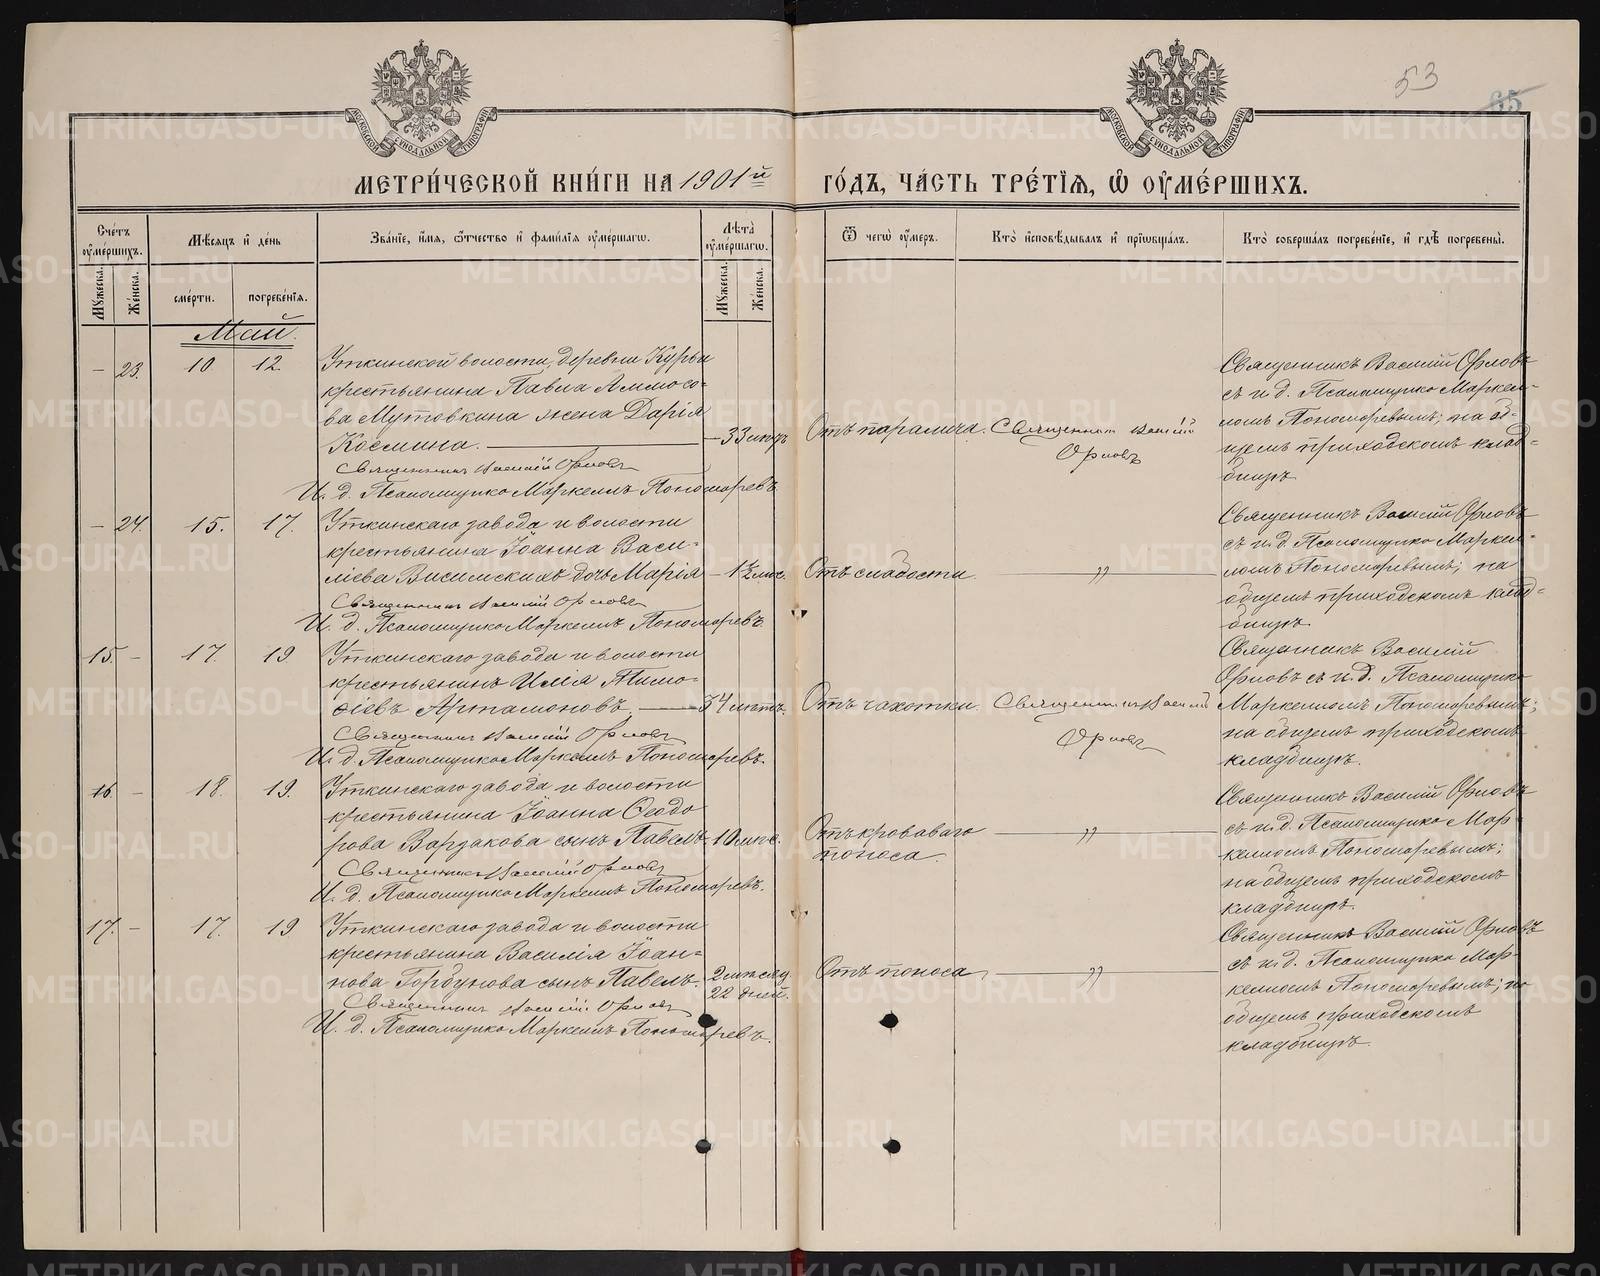 53
65
МОСКОВСКОЙ СѴНОДАЛЬНОЙ ТИПОГРАФІИ
МОСКОВСКОЙ СѴНОДАЛЬНОЙ ТИПОГРАФІИ
МЕТРИ́ЧЕСКОЙ КНИ́ГИ НА 1901й ГО́ДЪ, ЧА́СТЬ ТРЕ́ТІѦ, Ѿ ОУМЕ́РШИХЪ.
Сче́тъ оуме́ршихъ.
Мꙋжеска.
Же́нска.
Мѣ́сяцъ и҆ де́нь
сме́рти.
погребе́нїѧ.
Зва́нїе, и҆́мѧ, ѻ҆́тчество и҆ фами́лїѧ оуме́ршагѡ.
Лѣта̀ оуме́ршагѡ.
Мꙋжеска.
Же́нска.
Ѿ чегѡ̀ оу҆́меръ.
Кто̀ и҆сповѣ́дывалъ и҆ прїѡбща́лъ.
Кто̀ соверша́лъ погребе́нїе, и҆ гдѣ̀ погребены̀.
Май.
– 23. 10 12.
Уткинской волости, деревни Курьи
крестьянина Павла Аммосо-
ва Мутовкина жена Дарія
Космина. — 33 лѣтъ
Священникъ Василій Орловъ
И. д. Псаломщика Маркеллъ Пономаревъ
Отъ паралича.
Священникъ Василій
Орловъ
Священникъ Василій Орловъ
съ и. д. Псаломщика Маркел-
ломъ Пономаревымъ; на об-
щемъ приходскомъ клад-
бищѣ.
– 24. 15. 17.
Уткинскаго завода и волости
крестьянина Іоанна Васи-
ліева Висимскихъ дочь Марія – 1½ мѣс.
Священникъ Василій Орловъ
И. д. Псаломщика Маркеллъ Пономаревъ.
Отъ слабости. — „ —
Священникъ Василій Орловъ
съ и. д. Псаломщика Маркел-
ломъ Пономаревымъ; на
общемъ приходскомъ клад-
бищѣ.
15. – 17. 19
Уткинскаго завода и волости
крестьянинъ Илія Тимо-
ѳіевъ Артамоновъ. — 34 лѣтъ.
Священникъ Василій Орловъ
И. д. Псаломщика Маркеллъ Пономаревъ.
Отъ чахотки.
Священникъ Василій
Орловъ
Священникъ Василій
Орловъ съ и. д. Псаломщика
Маркелломъ Пономаревымъ;
на общемъ приходскомъ
кладбищѣ.
16. – 18. 19.
Уткинскаго завода и волости
крестьянина Іоанна Ѳеодо
рова Варзакова сынъ Павелъ. 10 мѣс.
Священникъ Василій Орловъ
И. д. Псаломщика Маркеллъ Пономаревъ.
Отъ кроваваго
поноса. — „ —
Священникъ Василій Орловъ
съ и. д. Псаломщика Мар-
келломъ Пономаревымъ;
на общемъ приходскомъ
кладбищѣ.
17. – 17. 19
Уткинскаго завода и волости
крестьянина Василія Іоан-
нова Горбунова сынъ Павелъ. 2 мѣсяц.
22 дней.
Священникъ Василій Орловъ
И. д. Псаломщика Маркеллъ Пономаревъ.
Отъ поноса, — „ —
Священникъ Василій Орловъ
съ и. д. Псаломщика Мар-
келломъ Пономаревымъ; на
общемъ приходскомъ
кладбищѣ.
METRIKI.GASO-URAL.RU